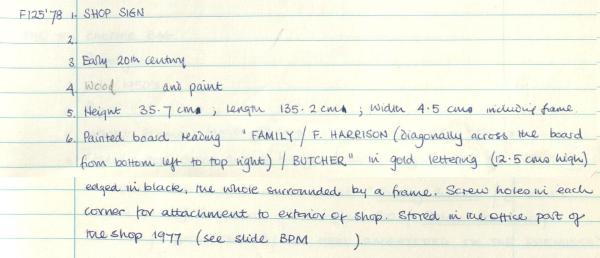 F125'78 1. SHOP SIGN
2.
3. Early 20th century
4. Wood and paint
5. Height 35.7 cms ; Length 135.2 cms ; Width 4.5 cms including frame.
6. Painted board reading "FAMILY / F. HARRISON (Diagonally across the board
from bottom left to top right) / BUTCHER" in gold lettering (12.5 cms high)
edged in black, the whole surrounded by a frame. Screw holes in each
corner for attachment to exterior of shop. Stored in the office part of
the shop 1977 (see slide BPM )